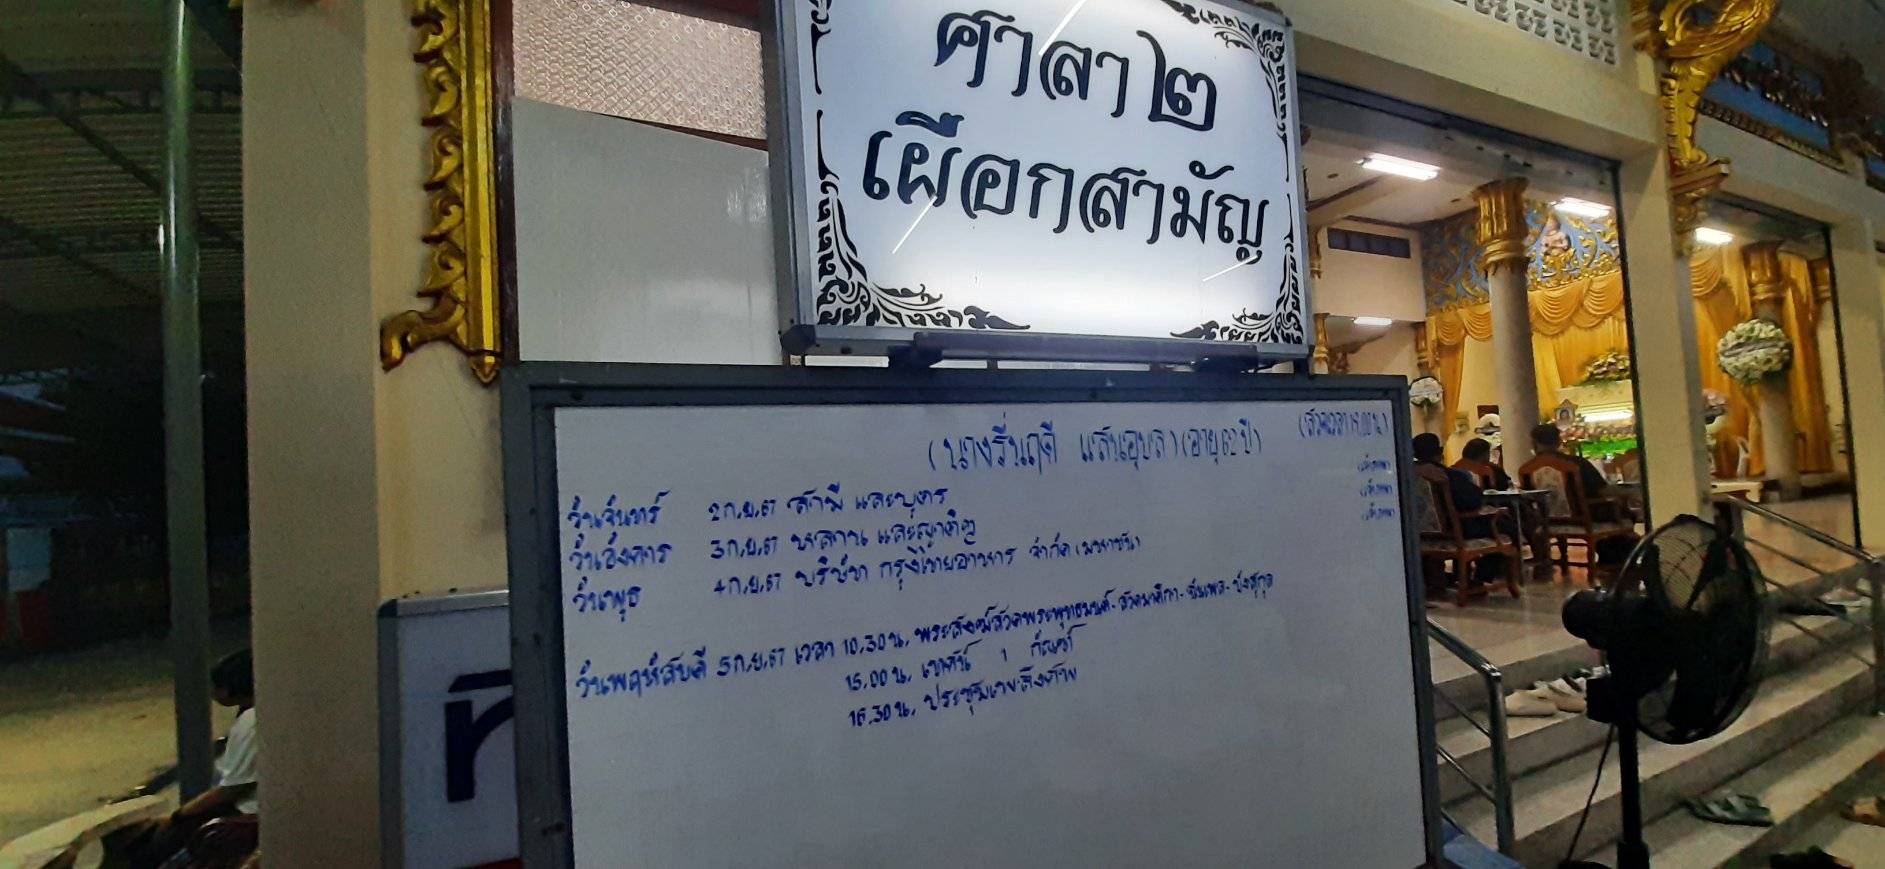 ศาลา ๒
เผือกสามัญ
(นางรื่นฤดี แสนอุบล) (อายุ 62 ปี)
วันจันทร์ 2 ก.ย. 67 สามี และบุตร
วันอังคาร 3 ก.ย. 67 หลาน และญาติๆ
วันพุธ 4 ก.ย. 67 บริษัท กรุงไทยอาหาร จำกัด (มหาชน)
วันพฤหัสบดี 5 ก.ย. 67 เวลา 10.30 น. พระสงฆ์สวดพระพุทธมนต์ - สวดมาติกา - ฉันเพล - บังสุกุล
15.00 น. เทศน์ 1 กัณฑ์
16.30 น. ประชุมเพลิง